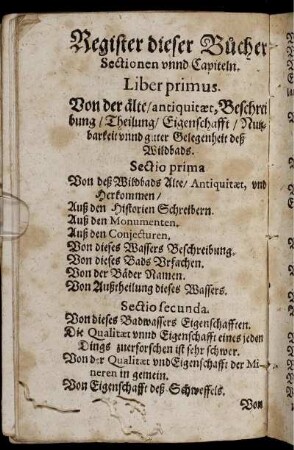 Register dieser Bůcher
Sectionen vnnd Capiteln.
Liber primus.
Von der älte/antiquitæt, Beschrei
bung/Theilung/Eigenschafft/Nutz
barkeit vnnd guter Gelegenheit deß
Wildbads.
Sectio prima
Von deß Wildbads Alte/Antiquitæt, vnd
Herkommen/
Auß den Historien Schreibern.
Auß den Monumenten.
Auß den Conjecturen.
Von dieses Wassers Beschreibung.
Von dieses Bads Vrsachen.
Von der Båder Namen.
Von Außtheilung dieses Wassers.
Sectio secunda.
Von dieses Badwassers Eigenschafften.
Die Qualitæt vnnd Eigenschafft eines jeden
Dings zuerforschen ist sehr schwer.
Von der Qualitæt vnd Eigenschafft der Mi
neren in gemein.
Von Eigenschafft deß Schweffels.
Von